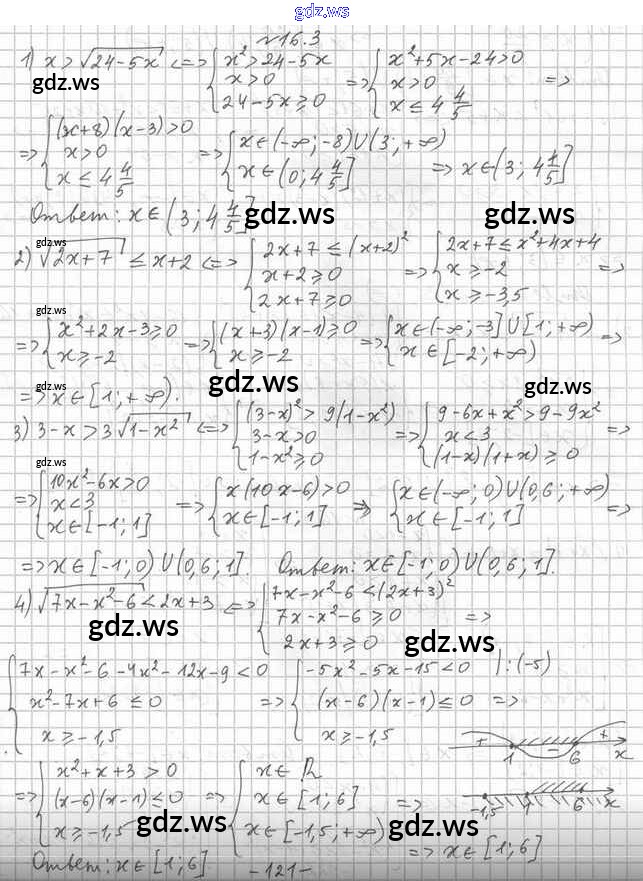 gdz.ws
№16.3
1) x > √(24-5x) <=> { x² > 24-5x; x > 0; 24-5x ≥ 0 => { x²+5x-24>0; x>0; x ≤ 4 4/5 =>
gdz.ws
=> { (x+8)(x-3)>0; x>0; x ≤ 4 4/5 => { x∈(-∞;-8)U(3;+∞); x∈(0; 4 4/5] => x∈(3; 4 4/5]
Ответ: x∈(3; 4 4/5]
gdz.ws gdz.ws
gdz.ws
2) √(2x+7) ≤ x+2 <=> { 2x+7 ≤ (x+2)²; x+2≥0; 2x+7≥0 => { 2x+7≤x²+4x+4; x≥-2; x≥-3,5 =>
gdz.ws
=> { x²+2x-3≥0; x≥-2 => { (x+3)(x-1)≥0; x≥-2 => { x∈(-∞;-3]U[1;+∞); x∈[-2;+∞) =>
gdz.ws gdz.ws gdz.ws
=> x∈[1;+∞).
3) 3-x > 3√(1-x²) <=> { (3-x)² > 9(1-x²); 3-x>0; 1-x²≥0 => { 9-6x+x²>9-9x²; x<3; (1-x)(1+x)≥0 =>
gdz.ws
=> { 10x²-6x>0; x<3; x∈[-1;1] => { x(10x-6)>0; x∈[-1;1] => { x∈(-∞;0)U(0,6;+∞); x∈[-1;1] =>
=> x∈[-1;0)U(0,6;1]. Ответ: x∈[-1;0)U(0,6;1].
4) √(7x-x²-6) < 2x+3 <=> { 7x-x²-6 < (2x+3)²; 7x-x²-6≥0; 2x+3≥0 =>
gdz.ws gdz.ws
{ 7x-x²-6-4x²-12x-9<0; x²-7x+6≤0; x≥-1,5 => { -5x²-5x-15<0 |:(-5); (x-6)(x-1)≤0; x≥-1,5 =>
+ - + 1 6 x
=> { x²+x+3>0; (x-6)(x-1)≤0; x≥-1,5 => { x∈R; x∈[1;6]; x∈[-1,5;+∞) => => x∈[1;6]
-1,5 1 6 x
gdz.ws gdz.ws
Ответ: x∈[1;6]
-121-